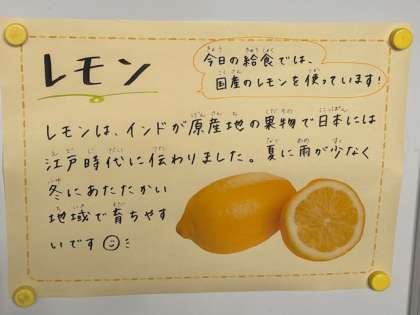 レモン
今日の給食では、
国産のレモンを使っています!
レモンは、インドが原産地の果物で日本には
江戸時代に伝わりました。夏に雨が少なく
冬にあたたかい
地域で育ちやす
いです